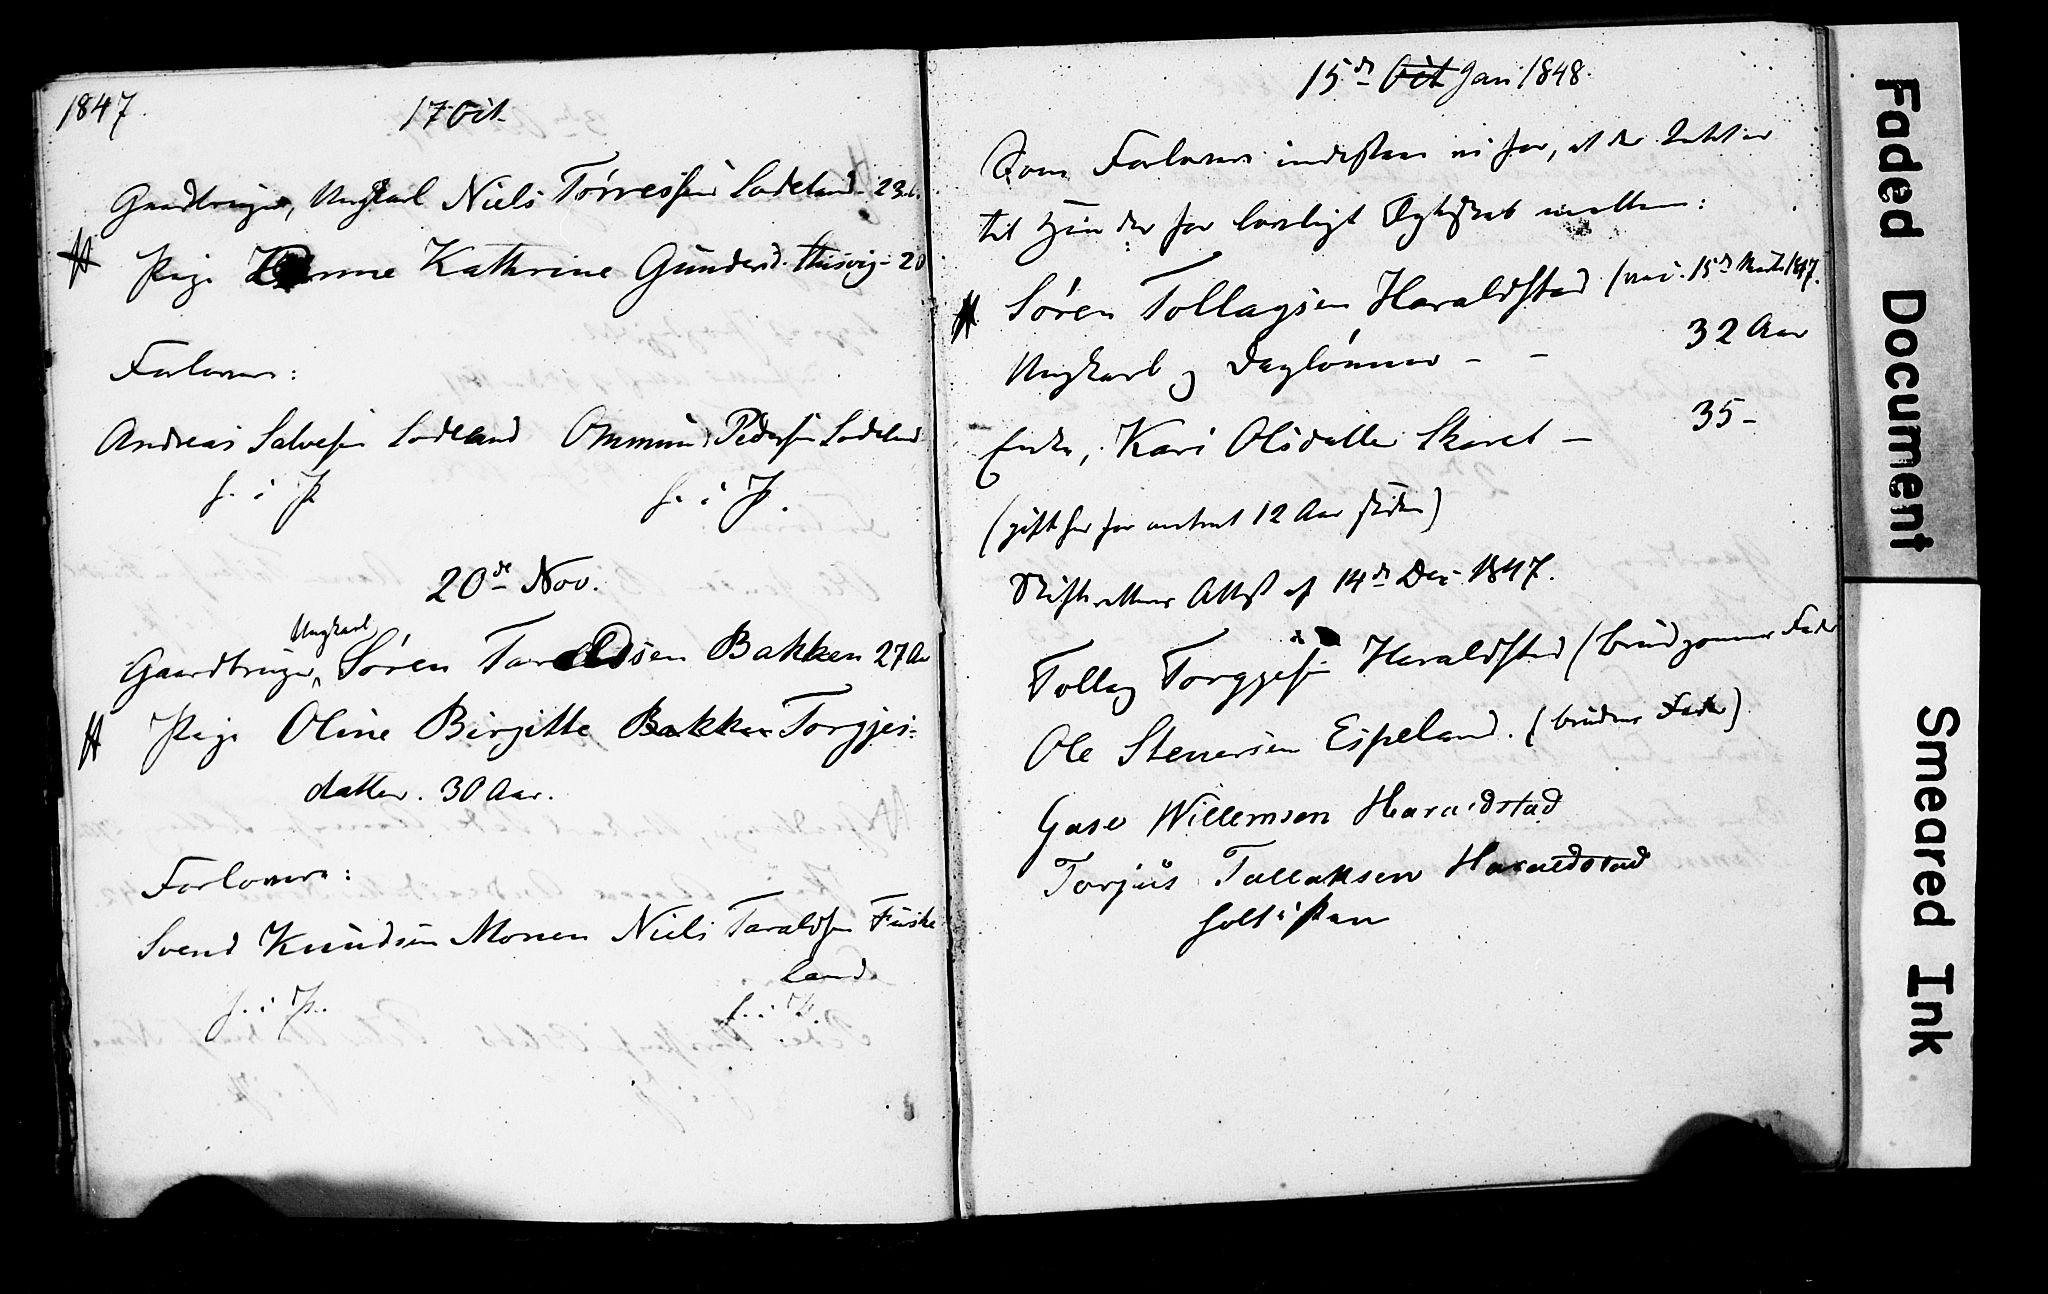 1847.
17 Oct
Gaardbruger, Ungkarl Niels Tørressen Lodeland 23
Pige Karine Kathrine Gundersd. 20
Forlovere:
Andreas Salvesen Lodeland Ommund Pedersen Lodeland
f. i P. f. i P.
20de Nov.
Ungkarl
Gaardbruger, Søren Taraldsen Bakken 27 Aar
Pige Oline Birgitte Bakken Torgjes-
datter. 30 Aar.
Forlovere:
Svend Knudsen Monen Niels Taraldsen Fuske
land.
f. i P. f. i P.
15de Oct Jan 1848.
Som Forlovere indestaae vi for, at der Intet er
til Hinder for lovligt Ægteskab mellem:
Søren Tollagsen Haraldstad (vac. 15de 1847.
Ungkarl og Daglønner - - 32 Aar
Enke, Kari Olsdatter Skaret - 35-
(gift før for omtrent 12 Aar siden)
Skifterettens Attest af 14de Dec 1847.
Tollag Torgjesen Haraldstad (brudgommens Fader
Ole Stenersen Espeland. (brudens Fader)
Gase Willemsen Haraldstad
Torjus Tallaksen Haraldstad
holt i Pen
Faded Document
Smeared Ink